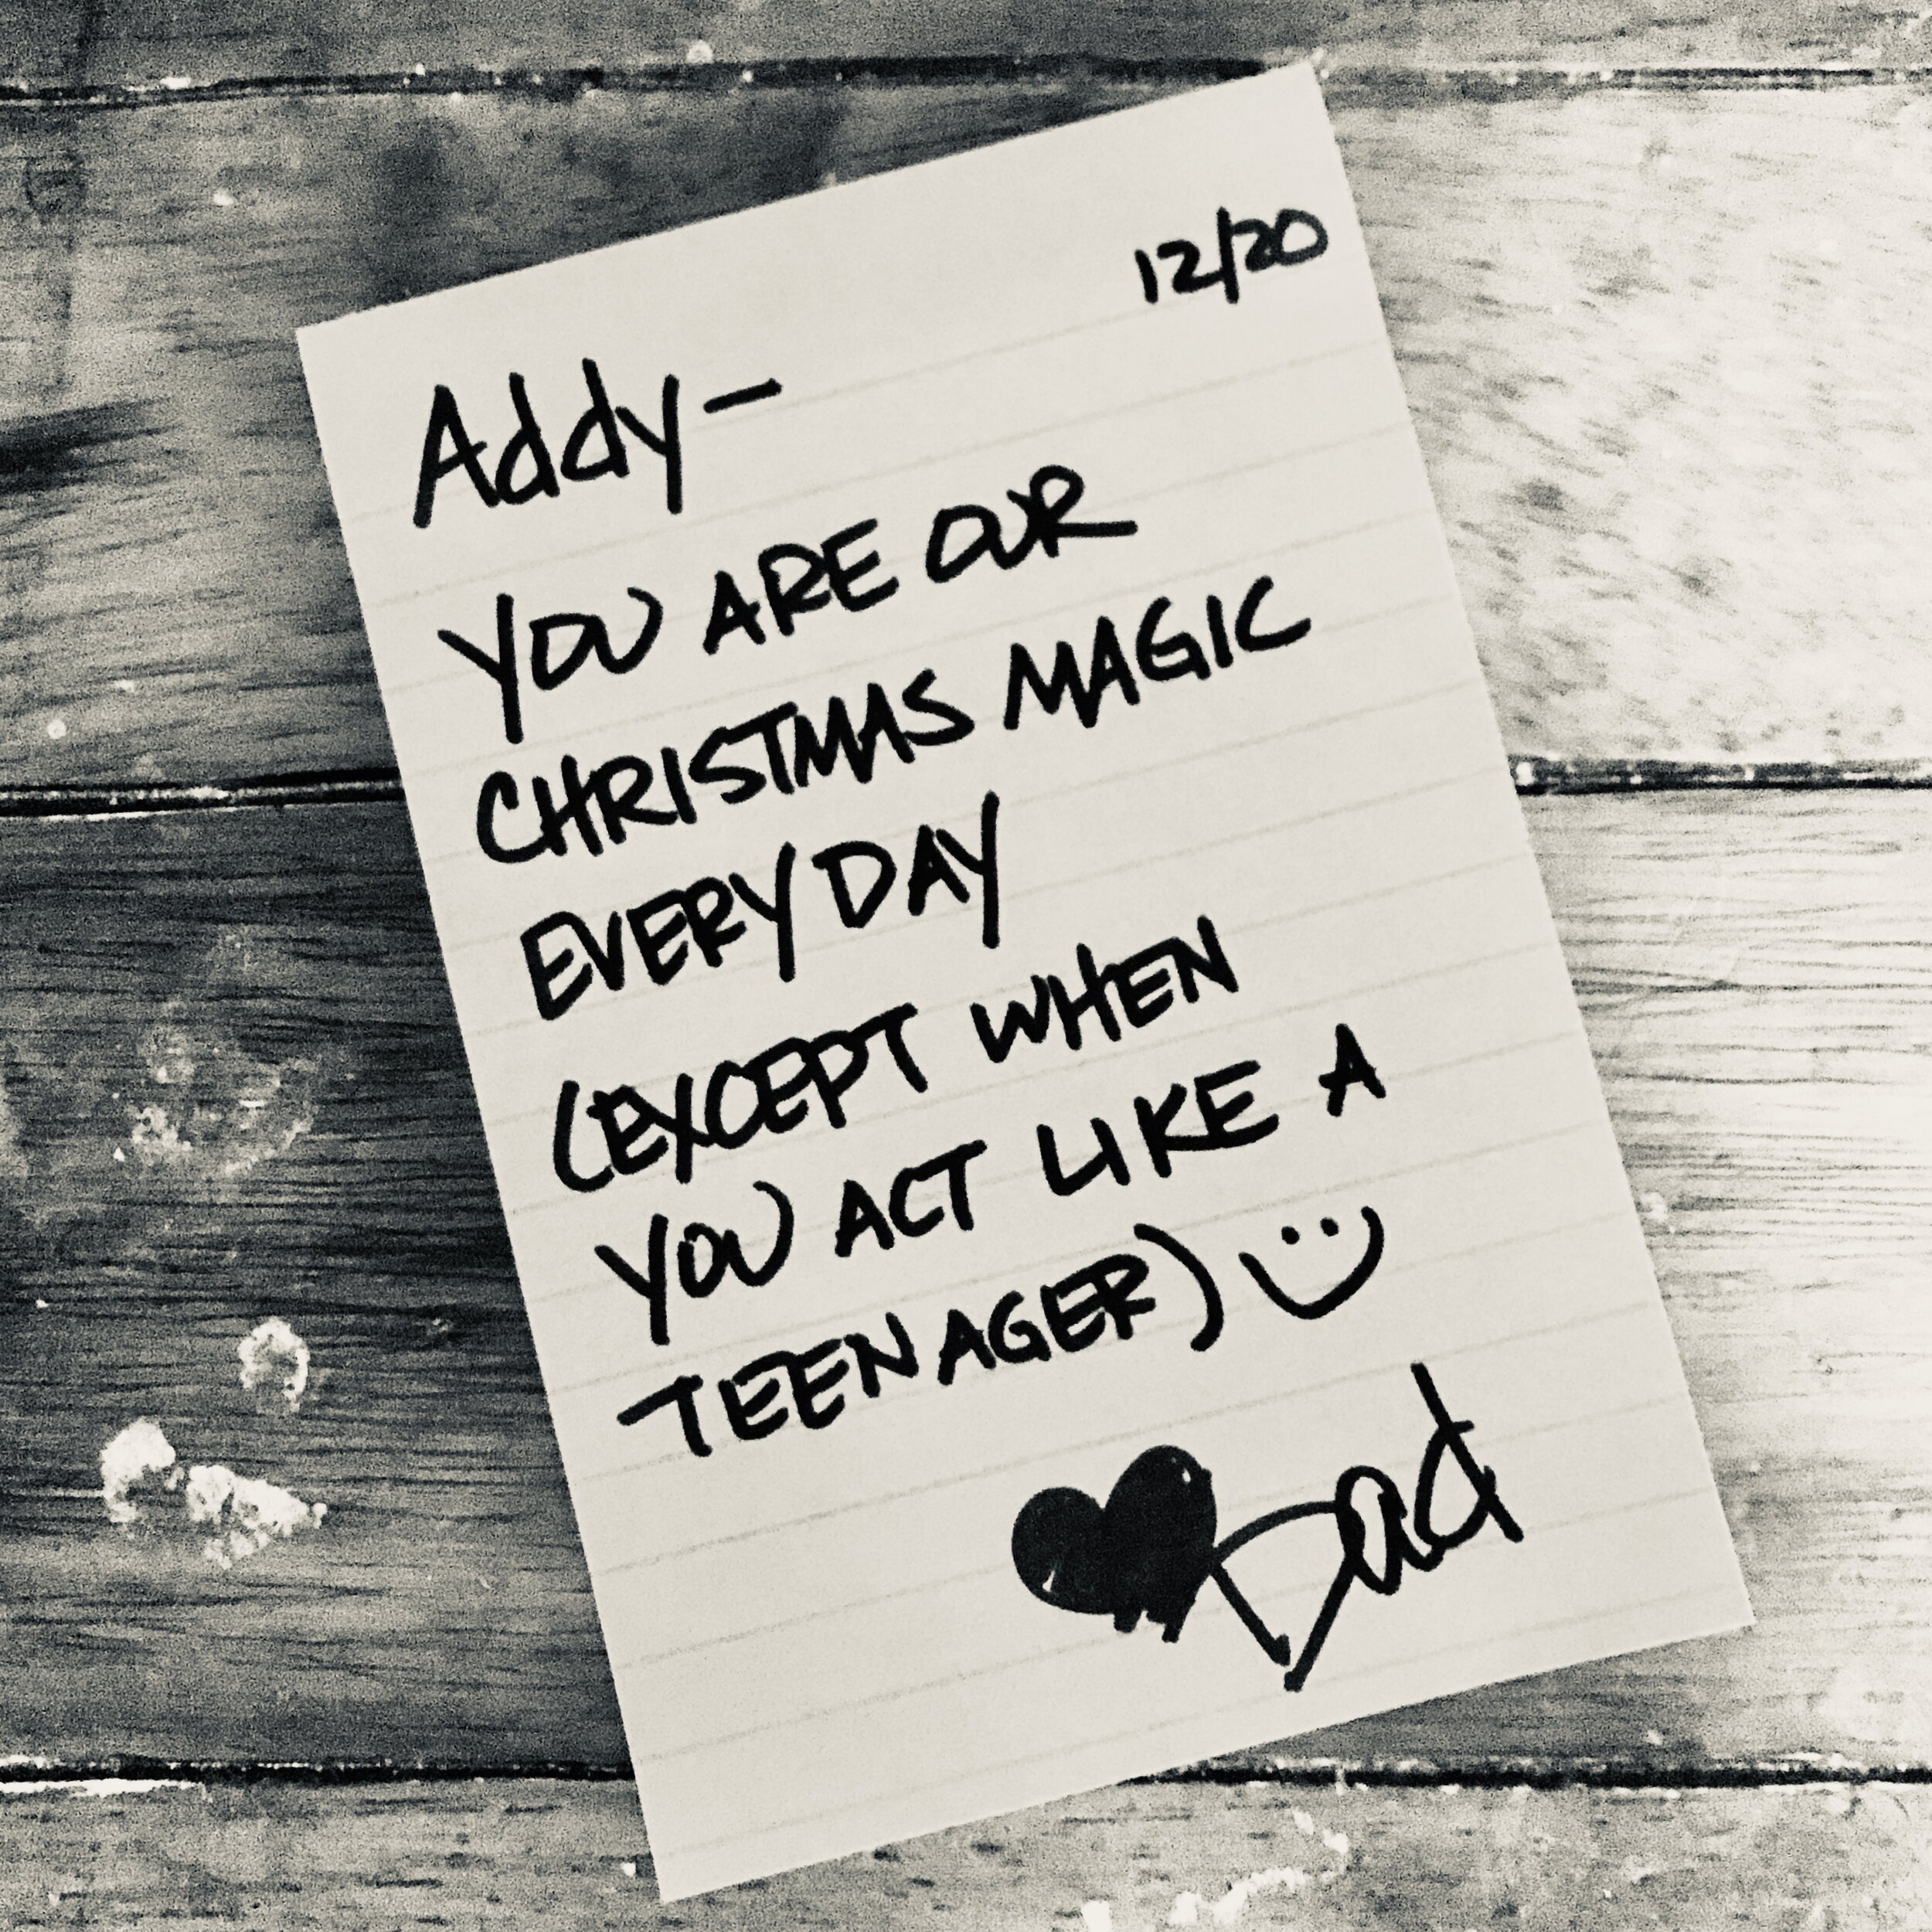 12/20
Addy-
YOU ARE OUR
CHRISTMAS MAGIC
EVERY DAY
(EXCEPT WHEN
YOU ACT LIKE A
TEENAGER) :)
♥ Dad